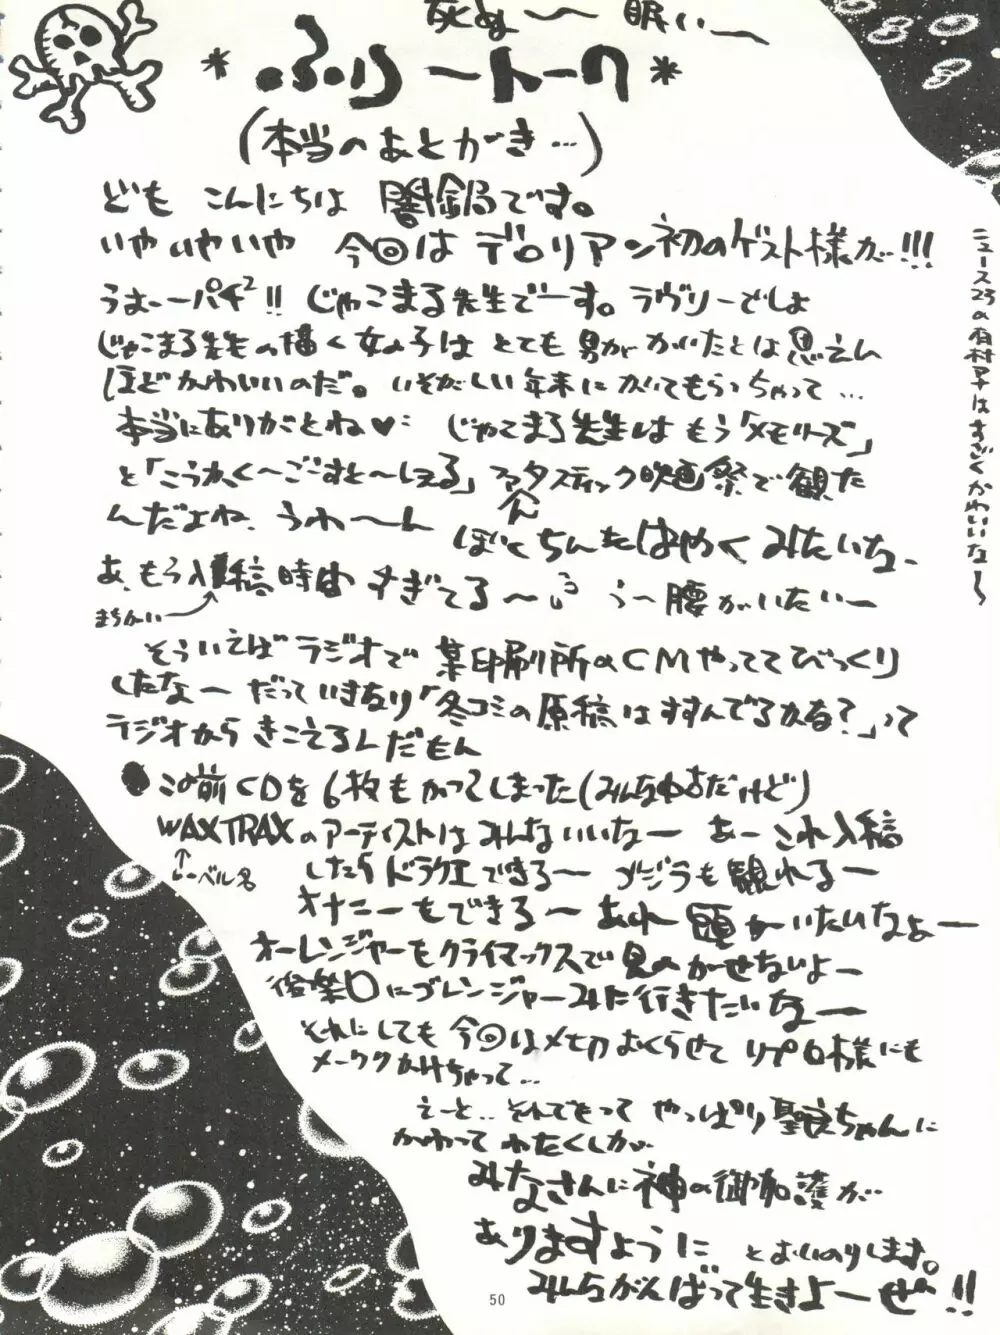 死ぬ〜 眠い〜
*ふりートーク*
(本当のあとがき…)
ども こんにちは 闇鍋です。
いやいやいや 今回は デロリアン初のゲスト様が!!!
うおーーパチ²!! じゃこまる先生でーす。ラヴリーでしょ
じゃこまる先生の描く女の子は とても 男が かいたとは思えん
ほどかわいいのだ。いそがしい年末に かいてもらっちゃって…
本当にありがとね♥ じゃこまる先生はもう「メモリーズ」
と「こうかく〜ごーすと〜しぇる」ファンタスティック映画祭で観た
んだよね、うわ〜〜ん ぼくちんもはやくみたいな、
あ、もう入稿時間すぎてる〜 う〜腰がいたいー
まちがい→
そういえば ラジオで 某印刷所のCMやっててびっくり
したなー だっていきなり「冬コミの原稿はすすんでるかな?」って
ラジオから きこえるんだもん
●この前CDを6枚もかってしまった(みんな中古だけど)
WAXTRAXのアーティストはみんないいなー あー これ入稿
↑レーベル名
したらドラクエできる〜 ガメラも観れるー
オナニーもできる〜 あれ 頭がいたいなよー
オーレンジャーもクライマックスで見のがせないよー
後楽口にゴレンジャーみに行きたいなー
それにしても 今回は〆切おくらせて リプロ様にも
メーワクかけちゃって…
えーと.. それでもって やっぱり 聖良ちゃんに
かわって わたくしが
みなさんに神の御加護が…
ありますように とおいのりします。
みんながんばって生きよーぜ!!
ニュース23の有村サンはすごくかわいいな〜
50